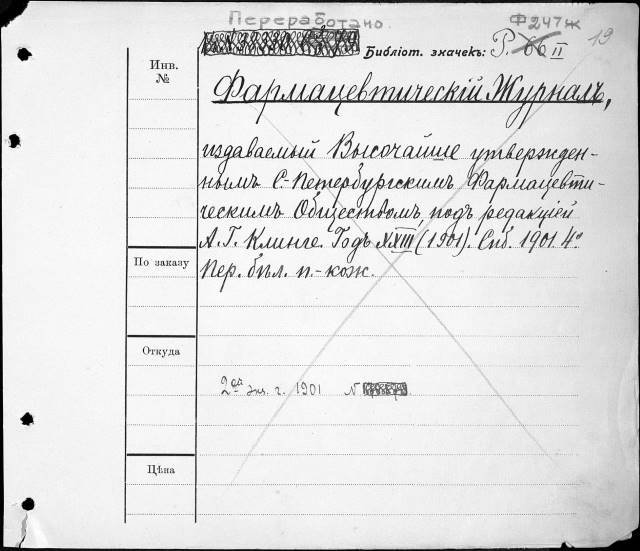 Переработано.
Ф247ж
19
Библіот. значекъ: Р. 66 II
Инв.
№
Фармацевтическій Журналъ,
издаваемый Высочайше утвержден-
нымъ С-Петербургскимъ Фармацевти-
ческимъ Обществомъ подъ редакціей
А.Г. Клинге. Годъ XXIII (1901). Спб. 1901. 4°
Пер. бѣл. п.-кож.
По заказу
Откуда
2ой экз. г. 1901 N
Цѣна